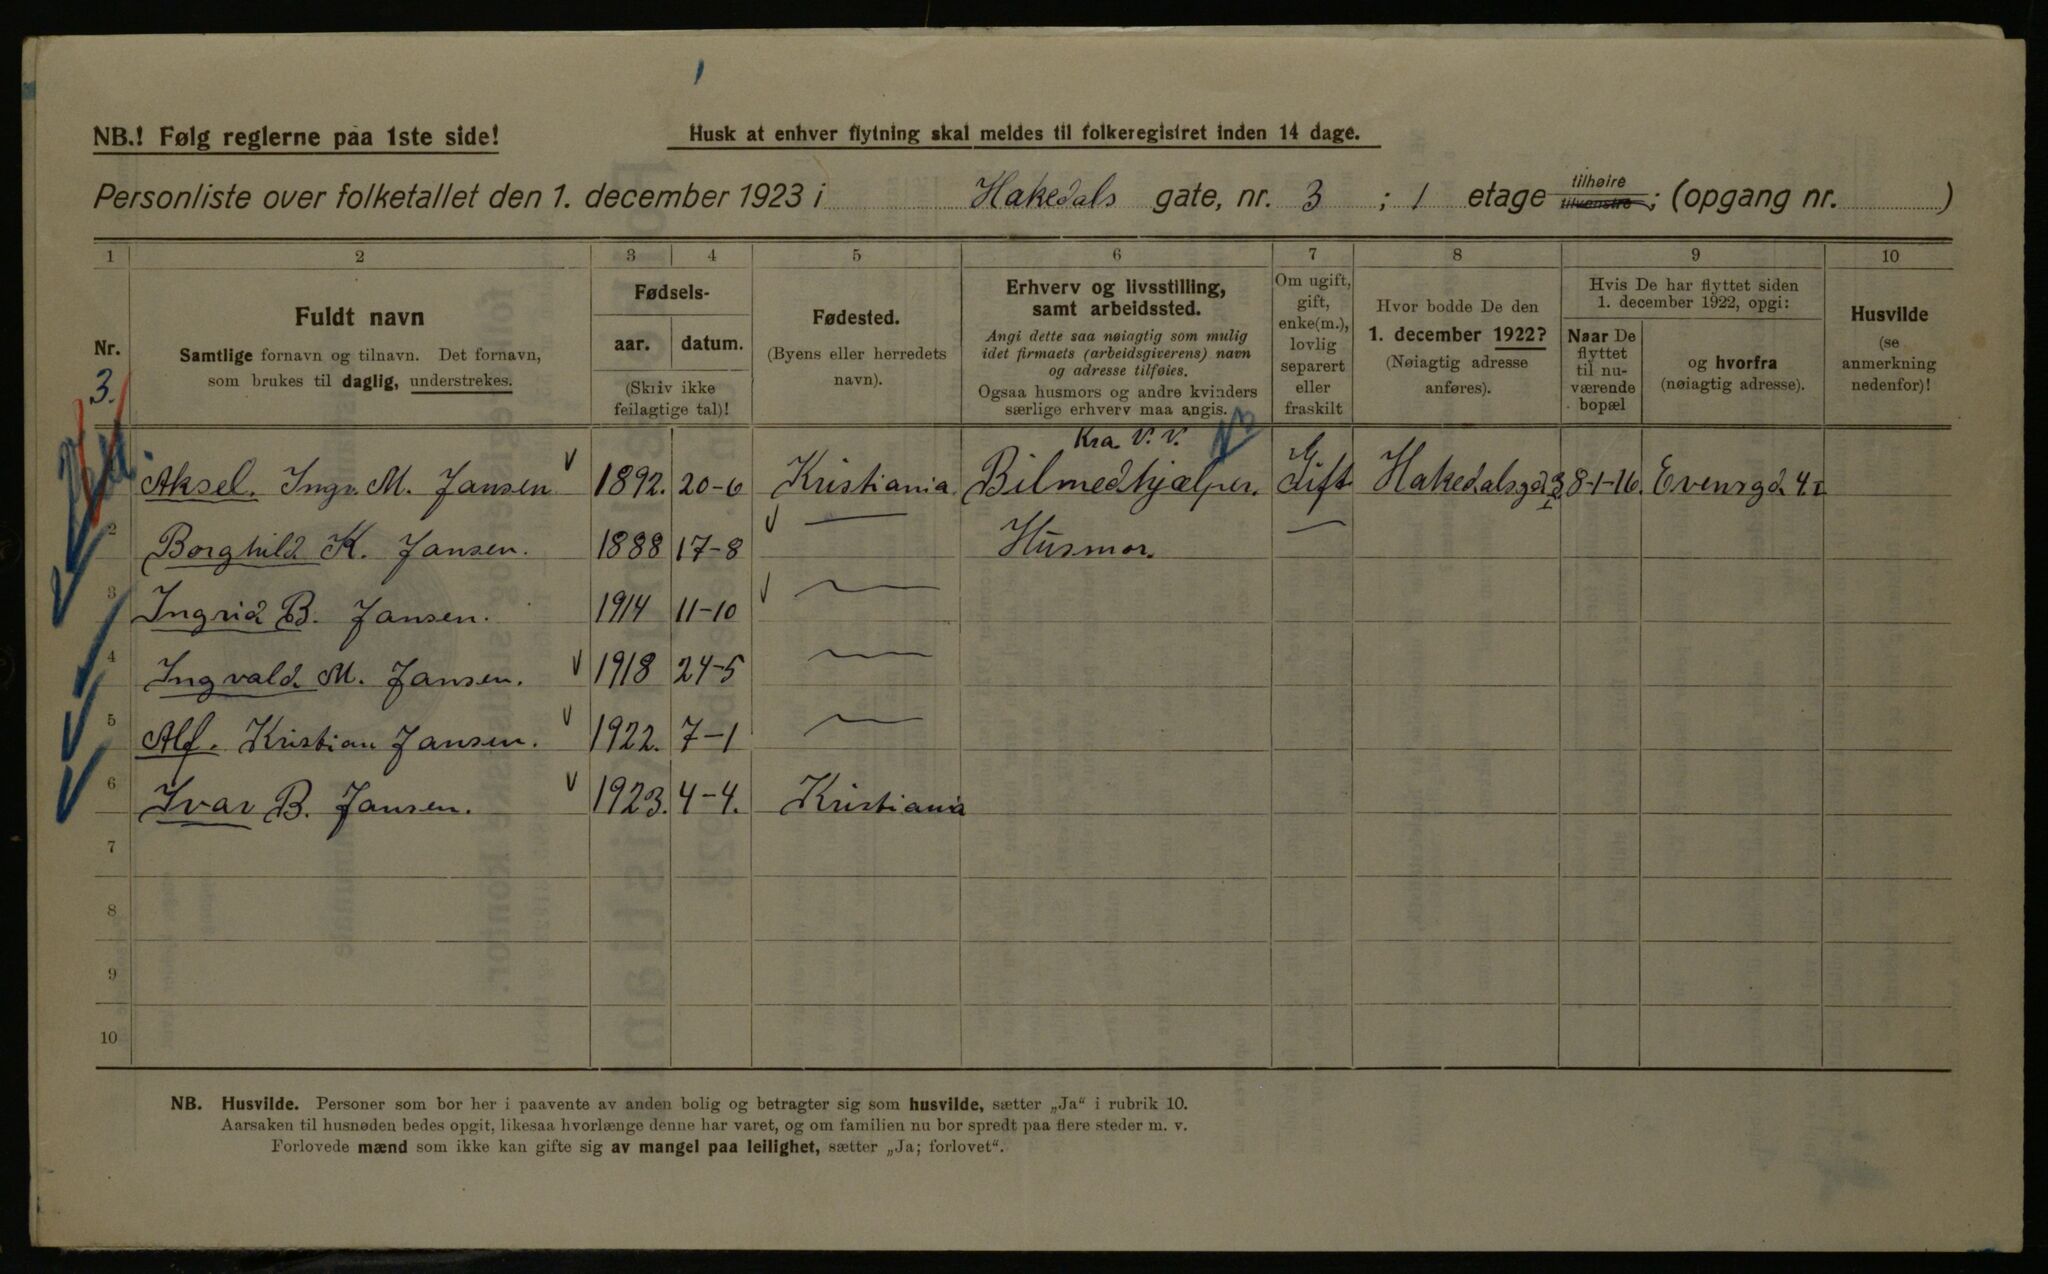 NB.! Følg reglerne paa 1ste side!
Husk at enhver flytning skal meldes til folkeregistret inden 14 dage.
Personliste over folketallet den 1. december 1923 i Hakedals gate, nr. 3 ; 1 etage tilhøire tilvenstre; (opgang nr. )
1 2 3 4 5 6 7 8 9 10
Nr.
3.
Fuldt navn
Samtlige fornavn og tilnavn. Det fornavn,
som brukes til daglig, understrekes.
Fødsels-
aar. datum.
(Skriv ikke
feilagtige tal)!
Fødested.
(Byens eller herredets
navn).
Erhverv og livsstilling,
samt arbeidssted.
Angi dette saa nøiagtig som mulig
idet firmaets (arbeidsgiverens) navn
og adresse tilføies.
Ogsaa husmors og andre kvinders
særlige erhverv maa angis.
Om ugift,
gift,
enke(m.),
lovlig
separert
eller
fraskilt
Hvor bodde De den
1. december 1922?
(Nøiagtig adresse
anføres).
Hvis De har flyttet siden
1. december 1922, opgi:
Naar De
flyttet
til nu-
værende
bopæl
og hvorfra
(nøiagtig adresse).
Husvilde
(se
anmerkning
nedenfor)!
Kra. V. V.
Aksel. Ingv. M. Jansen 1892. 20-6 Kristiania. Bilmedhjælper. Gift Hakedalsgd 3 I 8-1-16. Evensgd 4 I
2 Borghild K. Jansen. 1888 17-8 — Husmor. —
3 Ingrid B. Jansen. 1914 11-10 —
4 Ingvald M. Jansen. 1918 24-5 —
5 Alf. Kristian Jansen. 1922. 7-1 —
6 Ivar B. Jansen. 1923. 4-4. Kristiania
7
8
9
10
NB. Husvilde. Personer som bor her i paavente av anden bolig og betragter sig som husvilde, sætter „Ja“ i rubrik 10.
Aarsaken til husnøden bedes opgit, likesaa hvorlænge denne har varet, og om familien nu bor spredt paa flere steder m. v.
Forlovede mænd som ikke kan gifte sig av mangel paa leilighet, sætter „Ja; forlovet“.